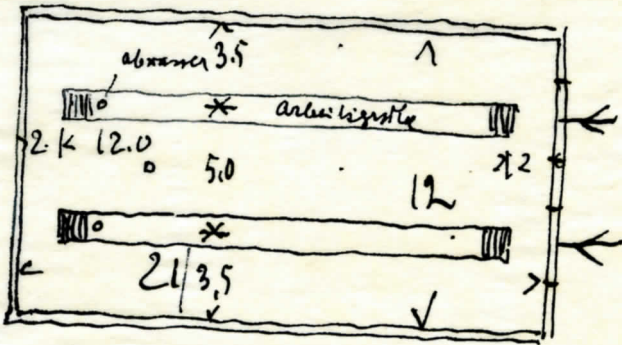 abwasser 3.5
Arbeitsgrube
2. 12.0
5.0
2
12
21 3,5